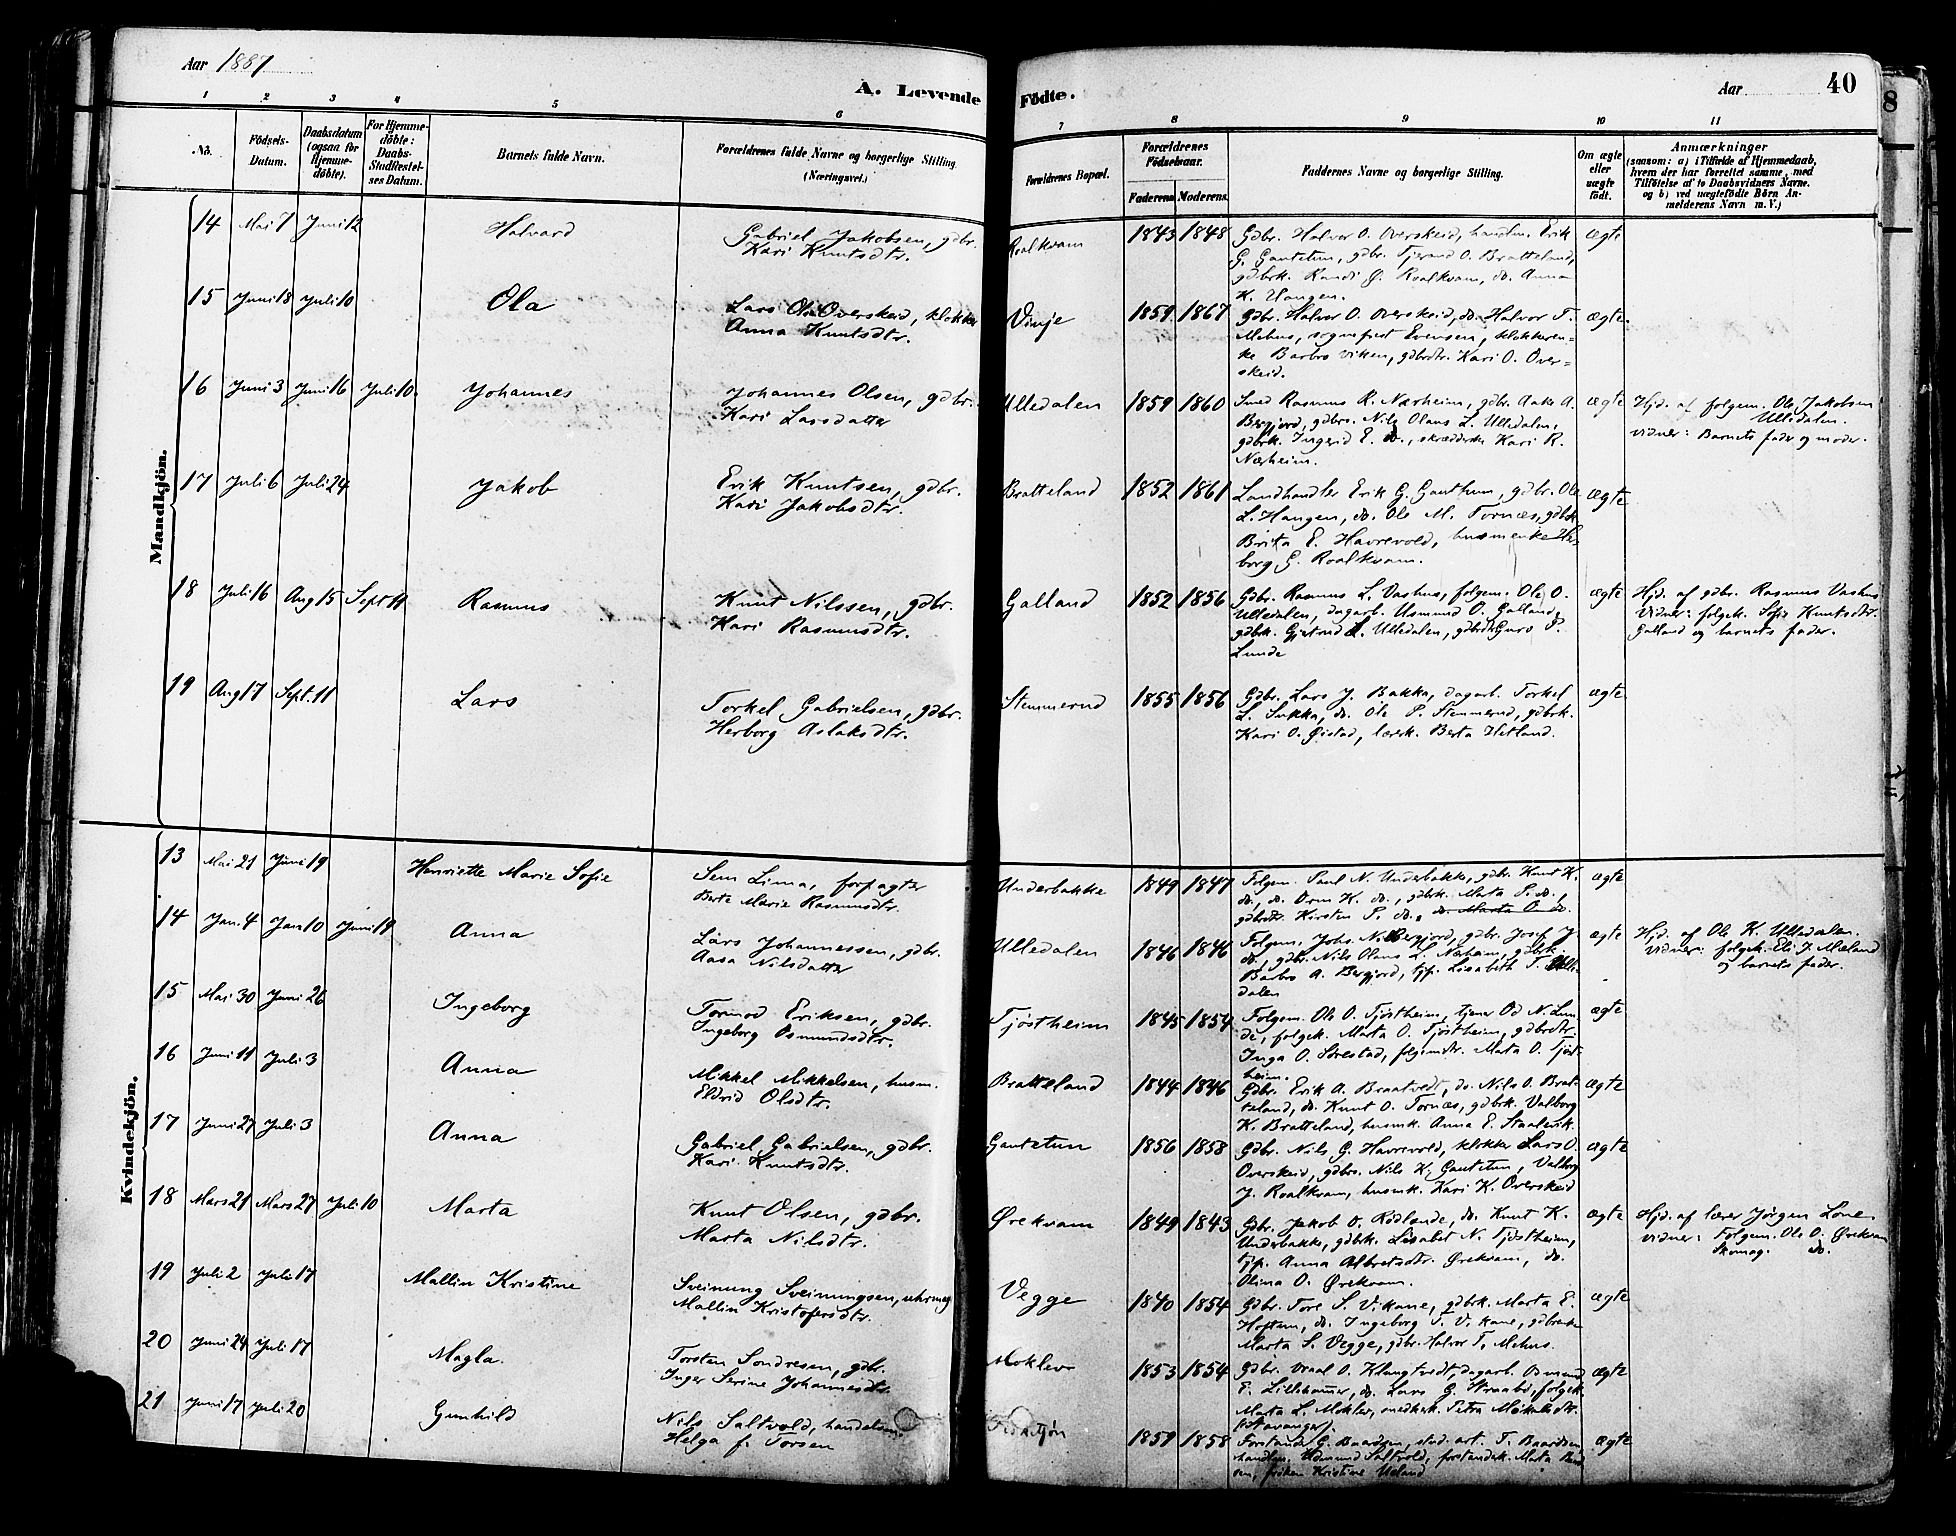 Aar 1887
A. Levende Fødte.
Aar 40
8
1 2 3 4 5 6 7 8 9 10 11
No.
Fødsels-Datum.
Daabsdatum (ogsaa for Hjemmedøbte).
For Hjemmedøbte: Daabs-Stadfæstelses Datum.
Barnets fulde Navn.
Forældrenes fulde Navne og borgerlige Stilling. (Næringsvei.)
Forældrenes Bopæl.
Forældrenes Fødselsaar.
Faderens Moderens
Faddernes Navne og borgerlige Stilling.
Om ægte eller uægte født.
Anmærkninger
(saasom: a) i Tilfælde af Hjemmedaab,
hvem der har forrettet samme, med
Tilføielse af to Daabsvidners Navne.
og b) ved uægtefødte Børn Anmelderens Navn m. V.)
Mandkjön.
14 Mai 7 Juni 12 Halvard Gabriel Jakobsen, gdbr. Roalkvam 1843 1848 Gdbr. Halvor O. Overskeid, handlm. Erik ægte
Kari Knutsdtr. G. Gautetun, gdbr. Tjerand O. Bratteland,
gdbrk. Randi G. Roalkvam, do. Anna
K. Haugen.
15 Juni 18 Juli 10 Ola Lars Ols. Overskeid, klokker Vinje 1859 1867 Gdbr. Halvor O. Overskeid, do. Halvor T. ægte.
Anna Knutsdtr. Mehus, sognepræst Evensen, klokkeren-
ke Barbro Viken, gdbrdtr. Kari O. Over-
skeid.
16 Juni 3 Juni 16 Juli 10 Johannes Johannes Olsen, gdbr. Ulledalen 1859 1860 Smed Rasmus R. Nærheim, gdbr. Aake A. ægte Hjd. af folgem. Ole Jakobsen
Kari Larsdatter Bergjord, gdbrs. Nils Olaus L. Ulledalen, Ulledalen.
gdbrk. Ingerid E. do., skrædderk. Kari R. vidner: Barnets fader og moder.
Nærheim.
17 Juli 6 Juli 24 Jakob Erik Knutsen, gdbr. Bratteland 1852 1861 Landhandler Erik G. Gautetun, gdbr. Ole ægte
Kari Jakobsdtr. L. Haugen, do. Ole M. Tornæs, gdbrk
Brita E. Havrevold, husmenke Her-
borg G. Roalkvam.
18 Juli 16 Aug 15 Sept 11 Rasmus Knut Nilssen, gdbr. Galland 1852 1856 Gdbr. Rasmus L. Vashus, folgem. Ole O. ægte Hjd. af gdbr. Rasmus Vashus
Kari Rasmusdtr. Ulledalen, dagarb. Osmund O. Galland, Vidner: folgek. Sofie Knutsdtr.
gdbrk. Gjertrud L. Ulledalen, gdbrdtr. Guro P. Galland og barnets fader.
Lunde
19 Aug 17 Sept. 11 Lars Torkel Gabrielsen, gdbr. Stemmerud 1855 1856 Gdbr. Lars J. Bakka, dagarb. Torkel ægte
Herborg Aslaksdtr. L. Sukka, do. Ole P. Stemmerud, gdbrk.
Kari O. Øistad, lærerk. Berta Hetland.
Kvindekjön.
13 Mai 21 Juni 19 Henriette Marie Sofie Sem Lima, forpagter Underbakke 1849 1847 Folgem. Paul N. Underbakke, gdbr. Knut K. ægte
Berte Marie Rasmusdtr. do., do. Orm K. do., gdbrk. Marta P. do.,
gdbrdtr. Kirsten P. do., do. Marta O. do.
14 Jan. 4 Jan 10 Juni 19 Anna Lars Johannessen, gdbr. Ulledalen 1846 1846 Folgem. Johs. N. Bergjord, gdbr. Josef J. ægte Hjd. af Ole K. Ulledalen.
Aasa Nilsdatter do., gdbr. Nils Olaus L. Nærheim, gdbrk. Vidner: folgek. Eli J. Mæland
Barbro A. Bergjord, tjp. Lisabeth T. Ulle- og barnets fader.
dalen
15 Mai 30 Juni 26 Ingeborg Tormod Eriksen, gdbr. Tjøstheim 1845 1854 Folgem. Ole O. Tjøstheim, tjener Od N. Lun- ægte
Ingeborg Osmundsdtr. de, folgek. Marta O. Tjøstheim, gdbrdtr.
Inga O. Sørestad, folgemdtr. Marta O. Tjøst-
heim.
16 Juni 11 Juli 3 Anna Mikkel Mikkelsen, husm. Bratteland 1844 1846 Gdbr. Erik A. Braatvedt, do. Nils O. Brat- ægte
Eldrid Olsdtr. teland, do. Knut O. Tornæs, gdbrk. Valborg
K. Bratteland, husmk. Anna E. Staalevik.
17 Juni 27 Juli 3 Anna Gabriel Gabrielsen, gdbr. Gautetun 1856 1858 Gdbr. Nils G. Havrevold, klokker Lars O. ægte
Kari Knutsdtr. Overskeid, gdbrs. Nils K. Gautetun, Valborg
J. Roalkvam, husmk. Kari K. Overskeid
18 Mars 21 Mars 27 Juli 10 Marta Knut Olsen, gdbr. Ørekvam 1849 1843 Gdbr. Jakob O. Rødlande, do. Knut K. ægte Hjd. af lærer Jørgen Lone
Marta Nilsdtr. Underbakke, gdbrk. Lisabet N. Tjøstheim, vidner: Folgem. Ole O. Ørekvam
tjp. Anna Albretsdtr. Ørekvam, do. Skomag. do.
Olina O. Ørekvam.
19 Juli 2 Juli 17 Mallin Kristine Sveinung Sveinungsen, uhrmag Vegge 1840 1854 Gdbr. Tore S. Vikane, gdbrk. Marta E. ægte
Mallin Kristofersdtr. Hoftun, do. Ingeborg T. Vikane, gdbrenke
Marta S. Vegge, gdbr. Halvor T. Mehus.
20 Juni 24 Juli 17 Magla. Torsten Sondresen, gdbr. Moklev 1853 1854 Gdbr. Vraal O. Klungtvedt, dagarb. Osmund ægte
Inger Serine Johannesdtr. E. Lillehammer, do. Lars G. Straabø, folgek.
Marta L. Moklev, smedkerk. Petra Mikalsdtr.
(Stavanger).
21 Juni 17 Juli 20 Gunhild Nils Saltvold, handelsm. 1859 1858 Forstander G. Baardsen, stud. art. T. Baardsen, ægte
Helga f. Torsen handlm. Osmund Saltvold, forstanderk. Marta Baard
sen, frøken Kristine Ueland